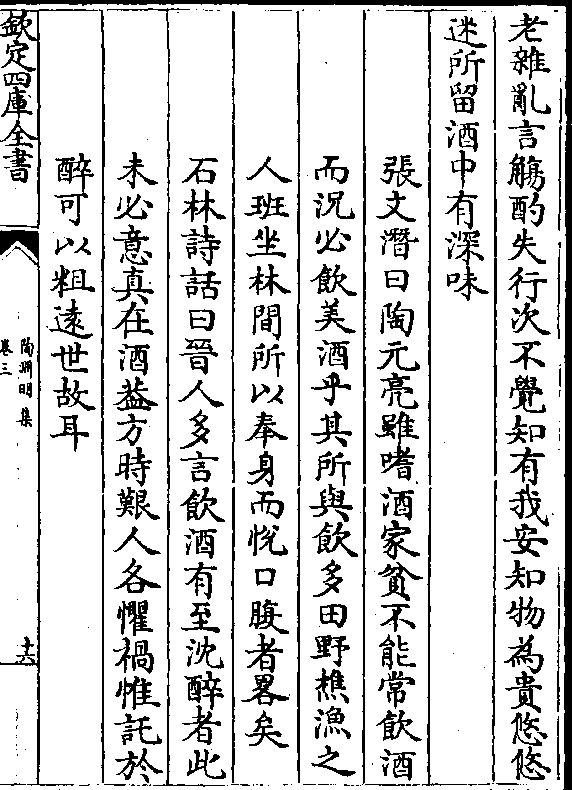 老雜亂言觴酌失行次不覺知有我安知物為貴悠悠
迷所留酒中有深味
張文潛曰陶元亮雖嗜酒家貧不能常飲酒
而況必飲美酒乎其所與飲多田野樵漁之
人班坐林間所以奉身而悅口腹者畧矣
石林詩話曰晉人多言飲酒有至沈醉者此
未必意真在酒葢方時艱人各懼禍惟託於
醉可以粗逺世故耳
欽定四庫全書
陶淵明集
卷三
十六